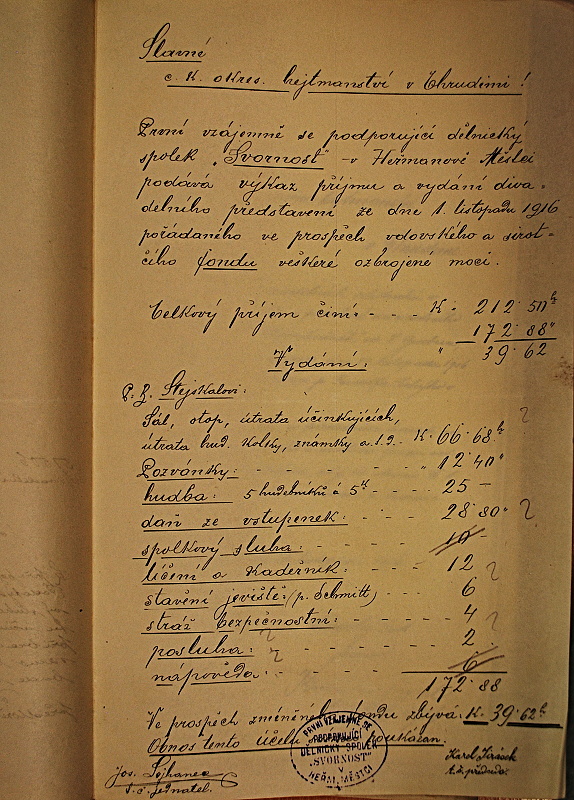 Slavné
c. k. okres. hejtmanství v Chrudimi!
První vzájemně se podporující dělnický
spolek „Svornost" v Heřmanově Městci
podává výkaz příjmu a vydání diva-
delního představení ze dne 1. listopadu 1916
pořádaného ve prospěch vdovského a sirot-
čího fondu veškeré ozbrojené moci.
Celkový příjem činí: - - - - K 212·50 h
172·88 "
" 39·62
Vydání:
P. R. Stejskalovi:
Sál, otop, útrata účinkujících,
útrata hud. Kolky, známky a t.d. K 66·68 h
Pozvánky: - - - - - " 12·40 "
hudba: 5 hudebníků á 5 K - - - 25 -
daň ze vstupenek: - - - - 28·80 "
spolkový sluha: - - - - 10 -
líčení a Kadeřník: - - - - 12
stavění jeviště: (p. Schmitt) - - - 6
stráž bezpečnostní: - - - - 4
posluha: - - - - 2
nápověda: - - - - 6
172·88
Ve prospěch zmíněného fondu zbývá: K. 39·62 h
Obnos tento účelu poukázán.
PRVNÍ VZÁJEMNĚ SE
PODPORUJÍCÍ
DĚLNICKÝ SPOLEK
„SVORNOST"
V
HEŘM. MĚSTCI
Karel Jirásek
t. č. předseda.
Jos.
t. č. jednatel.